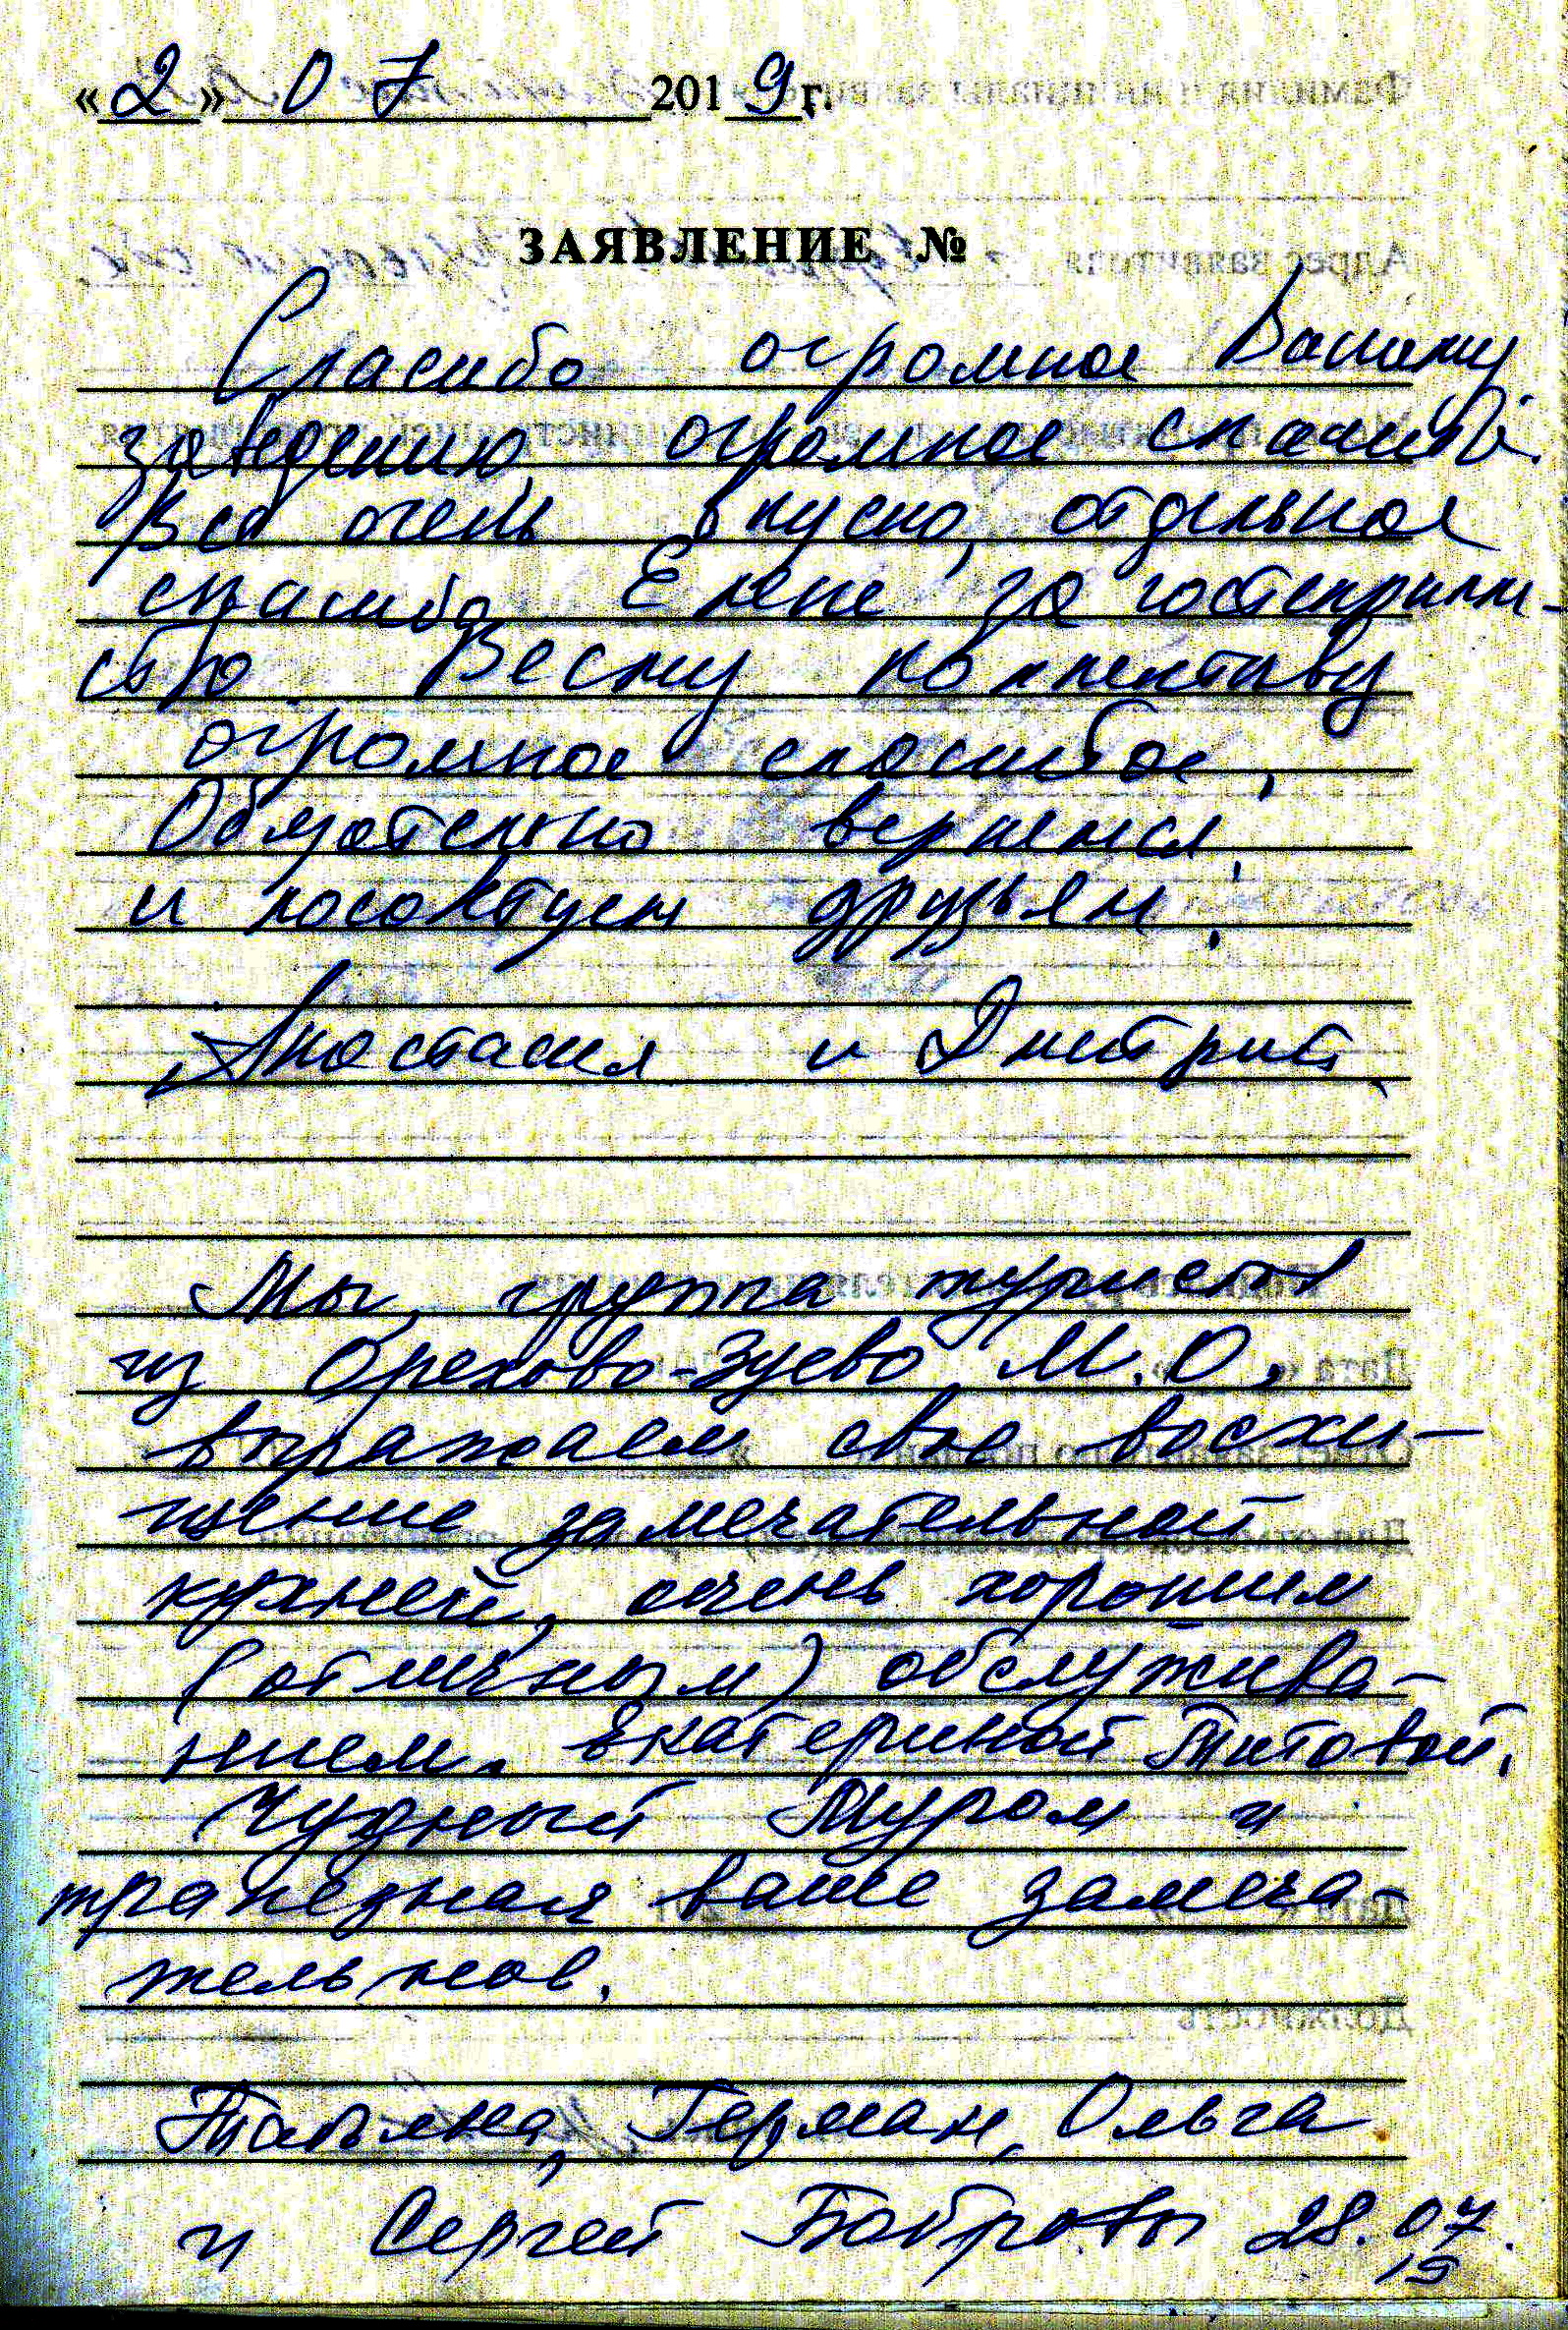 «2» 07 2019 г.
ЗАЯВЛЕНИЕ №
Спасибо огромное Вашему
заведению, огромное спасибо.
Все очень вкусно, отдельное
спасибо Елене за гостеприим-
ство Весму коллективу
огромное спасибое,
Обязательно вернемся
и посоктуем друзьям!
Анастасия и Дмитрий
Мы, группа туристов
из Орехово-Зуево М.О.
выражаем свое восхи-
щение замечательной
кухней, очень хорошим
(отличным) обслужива-
нием. Екатериной Титовой.
Чудный Муром и
трапезная ваше замеча-
тельное.
Татьяна, Герман, Ольга
и Сергей Бобровы 28.07.
19